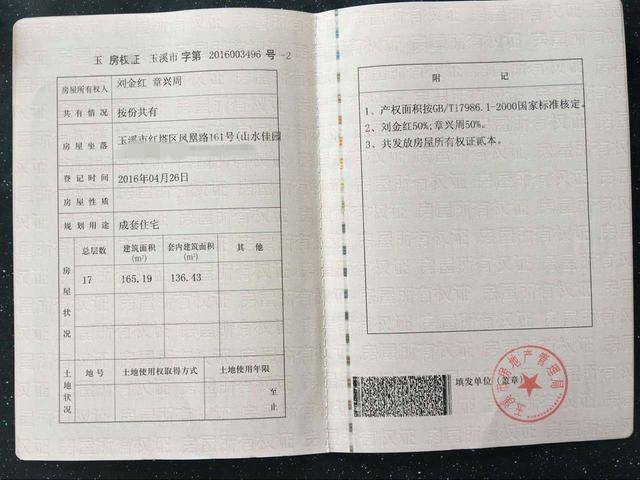 玉 房权证 玉溪市 字第 2016003496 号 -2
房屋所有权人 刘金红 章兴周
共有情况 按份共有
房屋坐落 玉溪市红塔区凤凰路161号(山水佳园
登记时间 2016年04月26日
房屋性质
规划用途 成套住宅
房屋状况
总层数 建筑面积(m²) 套内建筑面积(m²) 其他
17 165.19 136.43
土地状况
地号 土地使用权取得方式 土地使用年限
至
止
附 记
1、产权面积按GB/T17986.1-2000国家标准核定。
2、刘金红50%;章兴周50%。
3、共发放房屋所有权证贰本。
填发单位(盖章)
玉溪市房地产管理局